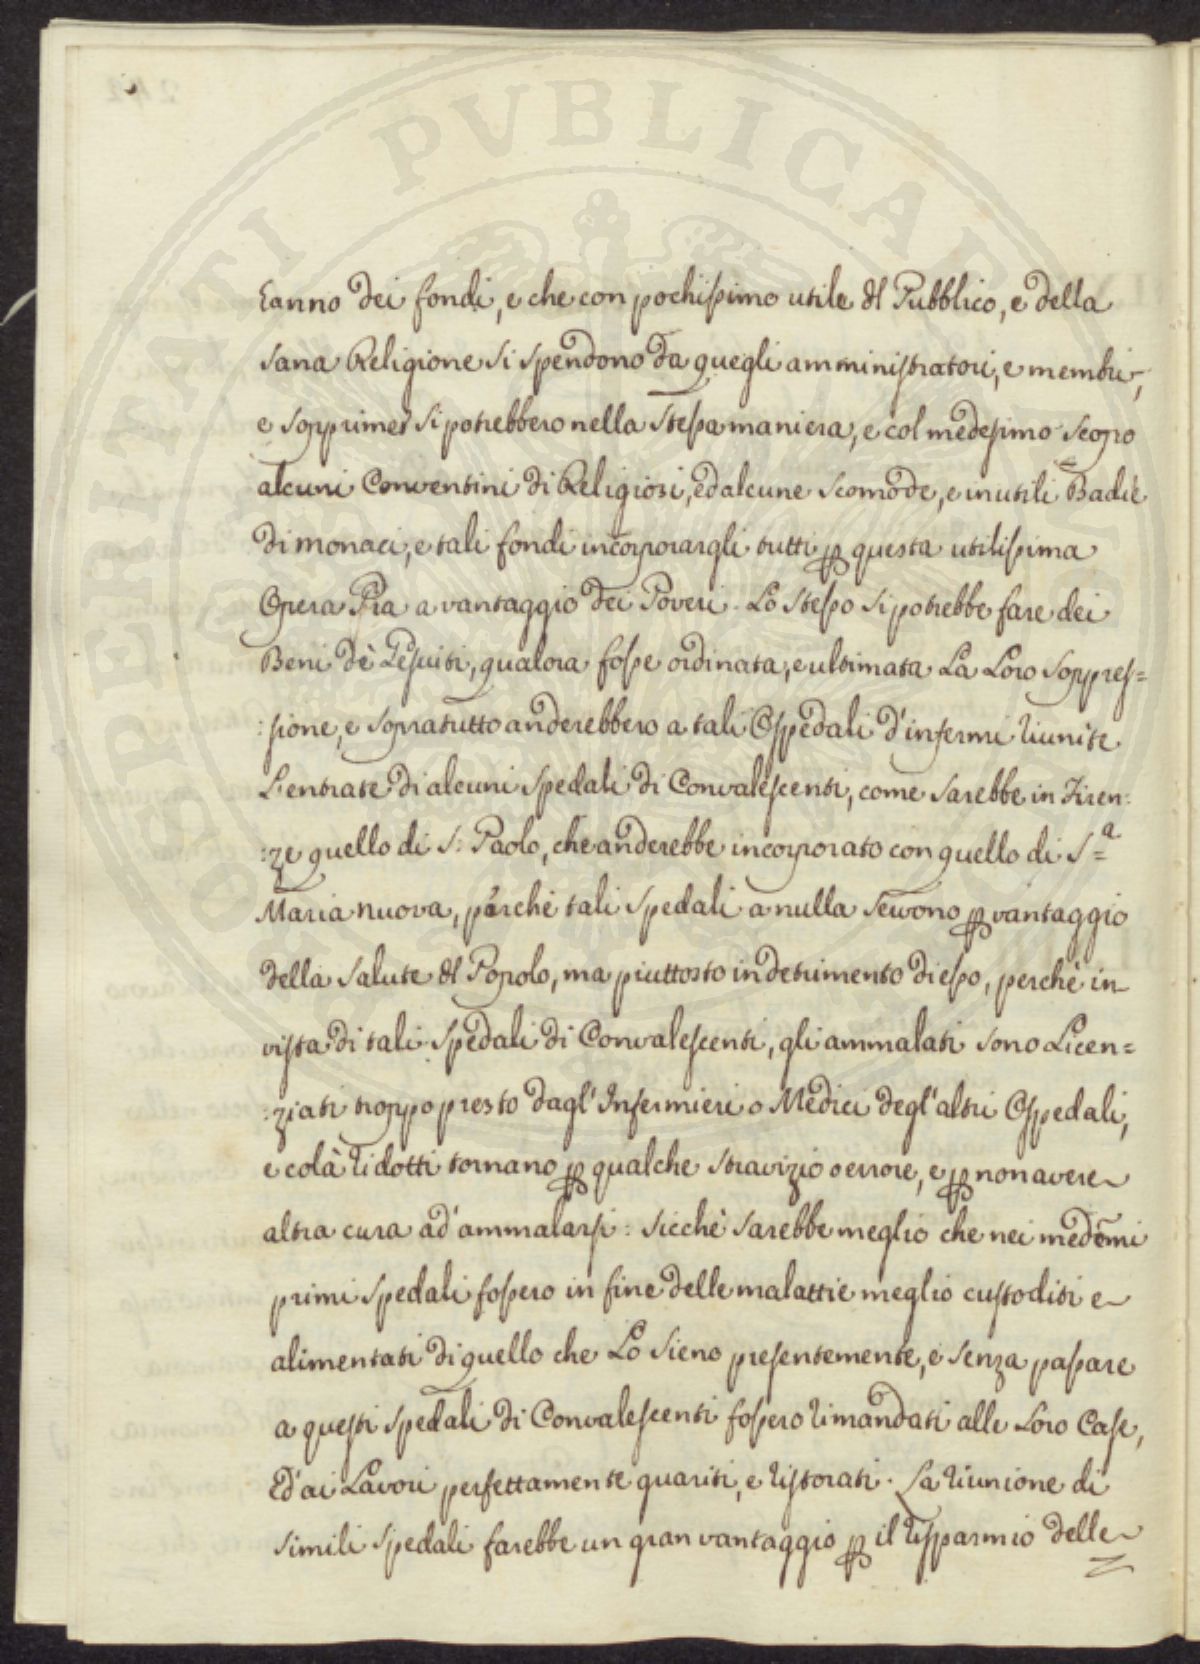 PROSPERITATI PUBLICAE
hanno dei fondi, e che con pochissimo utile del Pubblico, e della
sana Religione si spendono da quegli amministratori, e membri,
e sopprimer si potrebbero nella stessa maniera, e col medesimo scopo
alcuni Conventini di Religiosi, ed alcune scomode, e inutili Badie
di monaci, e tali fondi incorporargli tutti p questa utilissima
Opera Pia a vantaggio dei Poveri. Lo stesso si potrebbe fare dei
Beni dè Gesuiti, qualora fosse ordinata, e ultimata La Loro Soppres=
:sione, e sopratutto anderebbero a tali Ospedali d'infermi riunite
L'entrate di alcuni Spedali di Convalescenti, come sarebbe in Firen:
:ze quello di S: Paolo, che anderebbe incorporato con quello di S.a
Maria nuova, perchè tali Spedali a nulla servono p vantaggio
della Salute del Popolo, ma piuttosto in detrimento di esso, perchè in
vista di tali Spedali di Convalescenti, gli ammalati sono Licen=
:ziati troppo presto dagl'Infermieri o Medici degl'altri Ospedali,
e colà ridotti tornano p qualche stravizio o errore, e p non avere
altra cura ad'ammalarsi: sicchè sarebbe meglio che nei medemi
primi Spedali fossero in fine delle malattie meglio custoditi e
alimentati di quello che Lo sieno presentemente, e senza passare
a questi Spedali di Convalescenti fossero rimandati alle Loro Case,
Ed'ai Lavori perfettamente guariti, e ristorati. La riunione di
simili Spedali farebbe un gran vantaggio p il risparmio delle